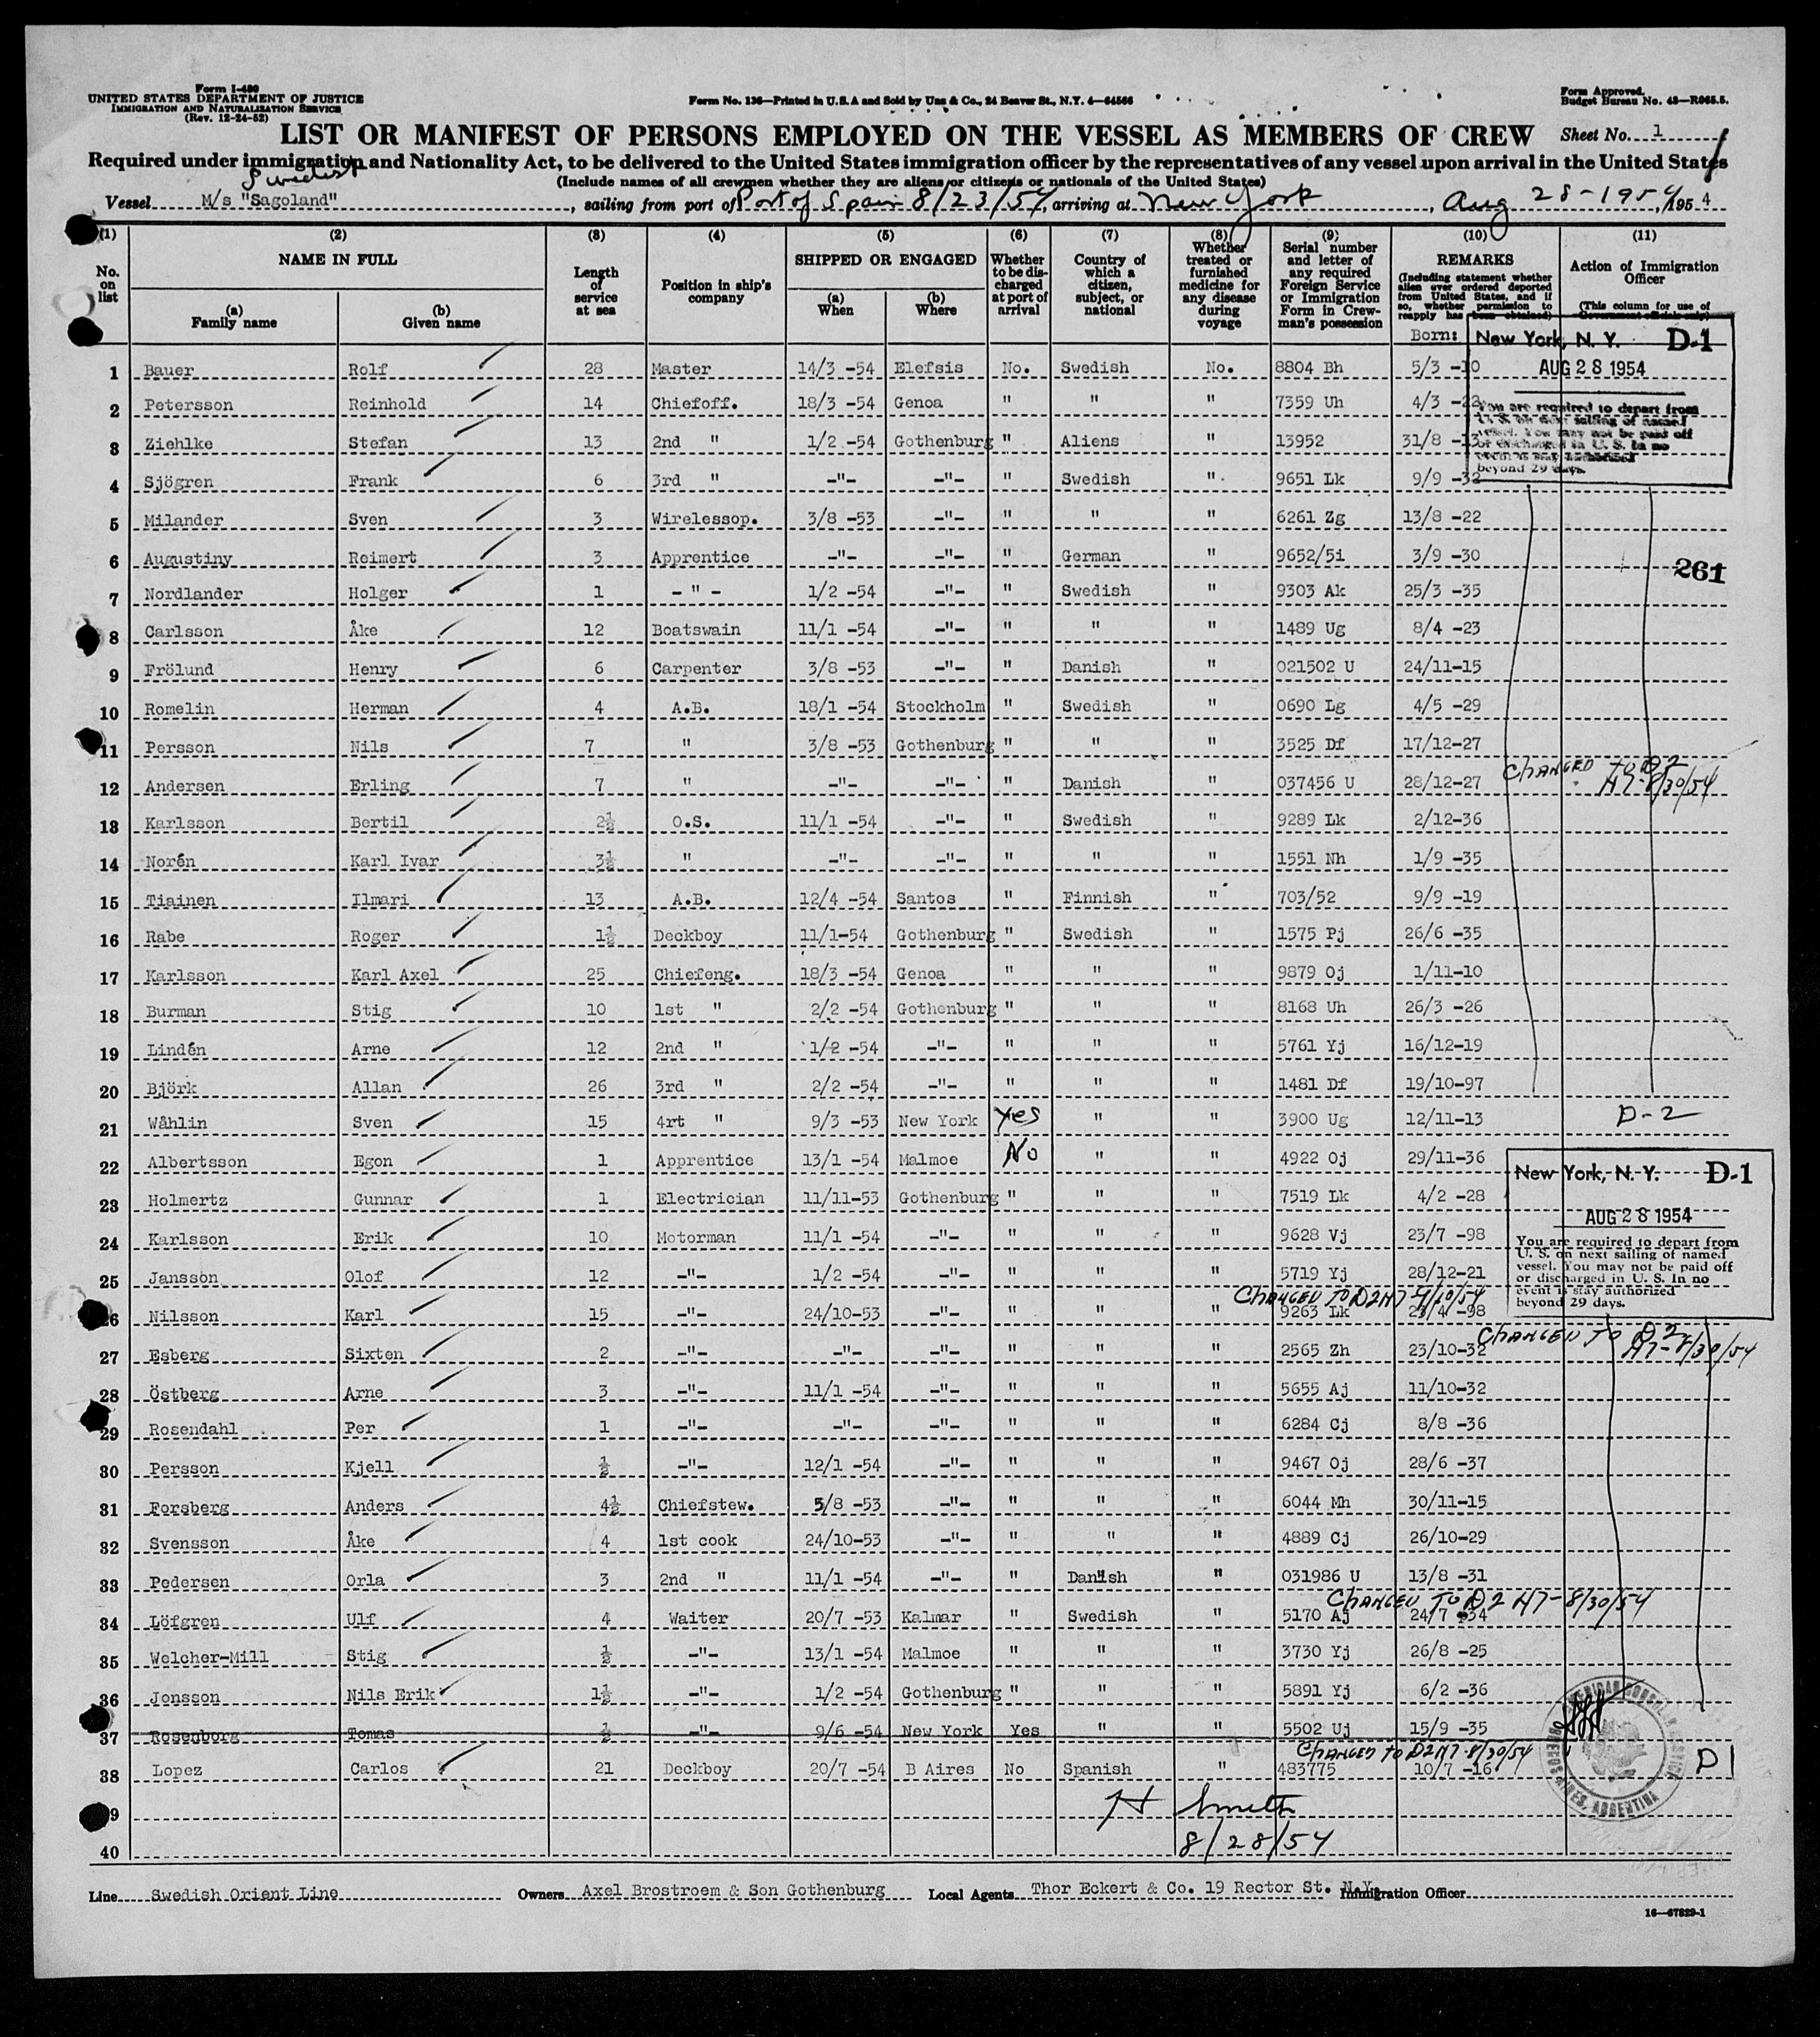 Form I-480
UNITED STATES DEPARTMENT OF JUSTICE
IMMIGRATION AND NATURALIZATION SERVICE
(Rev. 12-24-52)
Form No. 136—Printed in U.S.A and Sold by Unz & Co., 24 Beaver St., N.Y. 4—64566
Form Approved.
Budget Bureau No. 43—R065.5.
LIST OR MANIFEST OF PERSONS EMPLOYED ON THE VESSEL AS MEMBERS OF CREW
Sheet No. 1
Required under immigration and Nationality Act, to be delivered to the United States immigration officer by the representatives of any vessel upon arrival in the United States
(Include names of all crewmen whether they are aliens or citizens or nationals of the United States)
Swedish
Vessel M/s "Sagoland", sailing from port of Port of Spain 8/23/54, arriving at New York, Aug 28-1954, 195 4
(1) (2) (3) (4) (5) (6) (7) (8) (9) (10) (11)
No. on list
NAME IN FULL
(a) Family name
(b) Given name
Length of service at sea
Position in ship's company
SHIPPED OR ENGAGED
(a) When
(b) Where
Whether to be discharged at port of arrival
Country of which a citizen, subject, or national
Whether treated or furnished medicine for any disease during voyage
Serial number and letter of any required Foreign Service or Immigration Form in Crewman's possession
REMARKS
(Including statement whether alien ever ordered deported from United States, and if so, whether permission to reapply has been obtained)
Action of Immigration Officer
(This column for use of Government officials only)
Born:
New York, N. Y. D-1
AUG 28 1954
You are required to depart from
U. S. on next sailing of named
vessel. You may not be paid off
or discharged in U. S. In no
event is stay authorized
beyond 29 days.
1 Bauer Rolf 28 Master 14/3 -54 Elefsis No. Swedish No. 8804 Bh 5/3 -10
2 Petersson Reinhold 14 Chiefoff. 18/3 -54 Genoa " " " 7359 Uh 4/3 -22
3 Ziehlke Stefan 13 2nd " 1/2 -54 Gothenburg " Aliens " 13952 31/8 -13
4 Sjögren Frank 6 3rd " -"- -"- " Swedish " 9651 Lk 9/9 -32
5 Milander Sven 3 Wirelessop. 3/8 -53 -"- " " " 6261 Zg 13/8 -22
6 Augustiny Reimert 3 Apprentice -"- -"- " German " 9652/5i 3/9 -30
261
7 Nordlander Holger 1 - " - 1/2 -54 -"- " Swedish " 9303 Ak 25/3 -35
8 Carlsson Åke 12 Boatswain 11/1 -54 -"- " " " 1489 Ug 8/4 -23
9 Frölund Henry 6 Carpenter 3/8 -53 -"- " Danish " 021502 U 24/11-15
10 Romelin Herman 4 A.B. 18/1 -54 Stockholm " Swedish " 0690 Lg 4/5 -29
11 Persson Nils 7 " 3/8 -53 Gothenburg " " " 3525 Df 17/12-27
12 Andersen Erling 7 " -"- -"- " Danish " 037456 U 28/12-27 CHANGED TO D2 8/30/54
13 Karlsson Bertil 2½ O.S. 11/1 -54 -"- " Swedish " 9289 Lk 2/12-36
14 Norén Karl Ivar 3½ " -"- -"- " " " 1551 Nh 1/9 -35
15 Tiainen Ilmari 13 A.B. 12/4 -54 Santos " Finnish " 703/52 9/9 -19
16 Rabe Roger 1½ Deckboy 11/1-54 Gothenburg " Swedish " 1575 Pj 26/6 -35
17 Karlsson Karl Axel 25 Chiefeng. 18/3 -54 Genoa " " " 9879 Oj 1/11-10
18 Burman Stig 10 1st " 2/2 -54 Gothenburg " " " 8168 Uh 26/3 -26
19 Lindén Arne 12 2nd " 1/2 -54 -"- " " " 5761 Yj 16/12-19
20 Björk Allan 26 3rd " 2/2 -54 -"- " " " 1481 Df 19/10-97
21 Wåhlin Sven 15 4rt " 9/3 -53 New York yes " " 3900 Ug 12/11-13 D-2
22 Albertsson Egon 1 Apprentice 13/1 -54 Malmoe No " " 4922 Oj 29/11-36
New York, N. Y. D-1
AUG 28 1954
You are required to depart from
U. S. on next sailing of named
vessel. You may not be paid off
or discharged in U. S. In no
event is stay authorized
beyond 29 days.
23 Holmertz Gunnar 1 Electrician 11/11-53 Gothenburg " " " 7519 Lk 4/2 -28
24 Karlsson Erik 10 Motorman 11/1 -54 -"- " " " 9628 Vj 23/7 -98
25 Jansson Olof 12 -"- 1/2 -54 -"- " " " 5719 Yj 28/12-21
CHANGED TO D2
26 Nilsson Karl 15 -"- 24/10-53 -"- " " " 9263 Lk 23/4 -98
CHANGED TO D2 8/30/54
27 Esberg Sixten 2 -"- -"- -"- " " " 2565 Zh 23/10-32
28 Östberg Arne 3 -"- 11/1 -54 -"- " " " 5655 Aj 11/10-32
29 Rosendahl Per 1 -"- -"- -"- " " " 6284 Cj 8/8 -36
30 Persson Kjell ½ -"- 12/1 -54 -"- " " " 9467 Oj 28/6 -37
31 Forsberg Anders 4½ Chiefstew. 5/8 -53 -"- " " " 6044 Mh 30/11-15
32 Svensson Åke 4 1st cook 24/10-53 -"- " " " 4889 Cj 26/10-29
33 Pedersen Orla 3 2nd " 11/1 -54 -"- " Danish " 031986 U 13/8 -31
CHANGED TO D2 8/30/54
34 Löfgren Ulf 4 Waiter 20/7 -53 Kalmar " Swedish " 5170 Aj 24/7 -34
35 Welcher-Mill Stig ½ -"- 13/1 -54 Malmoe " " " 3730 Yj 26/8 -25
36 Jonsson Nils Erik 1½ -"- 1/2 -54 Gothenburg " " " 5891 Yj 6/2 -36
37 Rosenborg Tomas ½ -"- 9/6 -54 New York Yes " " 5502 Uj 15/9 -35
CHANGED TO D2 8/30/54
38 Lopez Carlos 21 Deckboy 20/7 -54 B Aires No Spanish " 483775 10/7 -16 D1
BUENOS AIRES, ARGENTINA
39 H Smith
40 8/28/54
Line Swedish Orient Line Owners Axel Brostroem & Son Gothenburg Local Agents Thor Eckert & Co. 19 Rector St. N.Y. Immigration Officer
16—67829-1